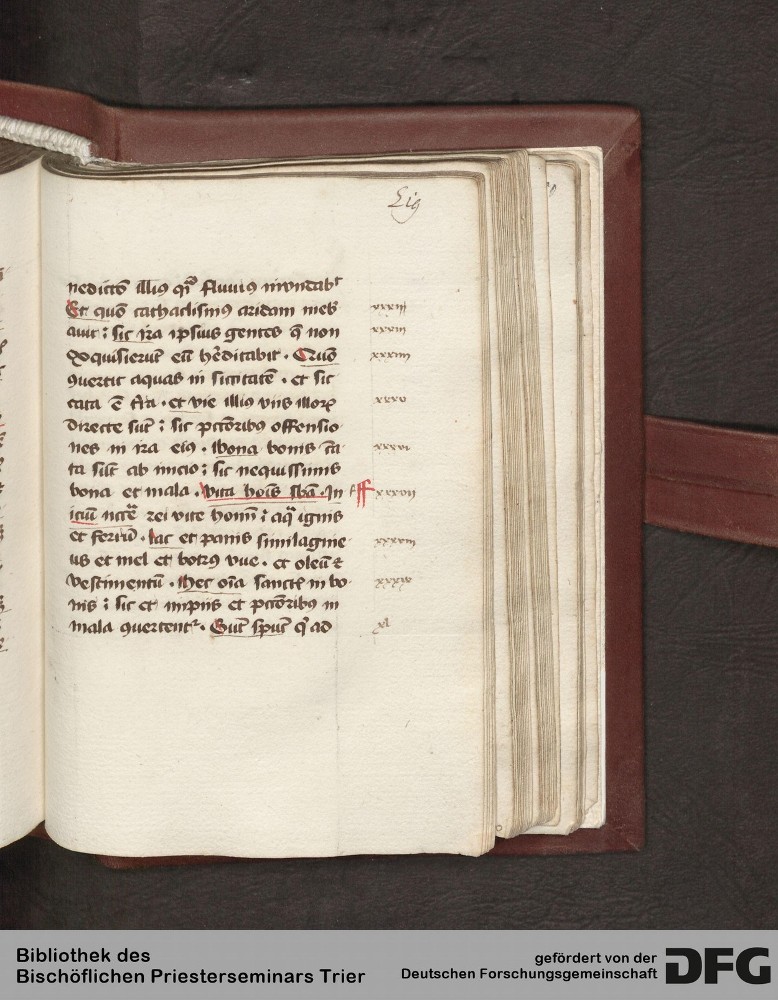 Lig
nedictō illiꝰ qͣ fluuiꝰ inundabͭ
Et quō cathaclismꝰ aridam ineb̄
auit : sic ira ipsius gentes q̄ non
exquisierūt eū hēditabit . Quō
ꝯuertit aquas in siccitatē . et sic
cata ē t̄ra . et vie illiꝰ viis illoꝝ
directe sūt : sic pctōribꝰ offensio
nes in ira eiꝰ . Bona bonis c̄a
ta sūt ab inicio : sic nequissimis
bona et mala . Vita hoīs sb̄a . In
iciū nccē rei vite homī : aq̄ ignis
et ferrū . lac et panis similagine
us et mel et botrꝰ vue . et oleū ⁊
vestimentū . Hec oīa sanctis in bo
nis : sic et impiis et pctōribꝰ in
mala ꝯuertentᷣ . Sūt spūs qͥ ad
xxxiii
xxxiiii
xxxv
xxxvi
xxxvii
xxxviii
xxxix
xl
Bibliothek des
Bischöflichen Priesterseminars Trier
gefördert von der
Deutschen Forschungsgemeinschaft
DFG